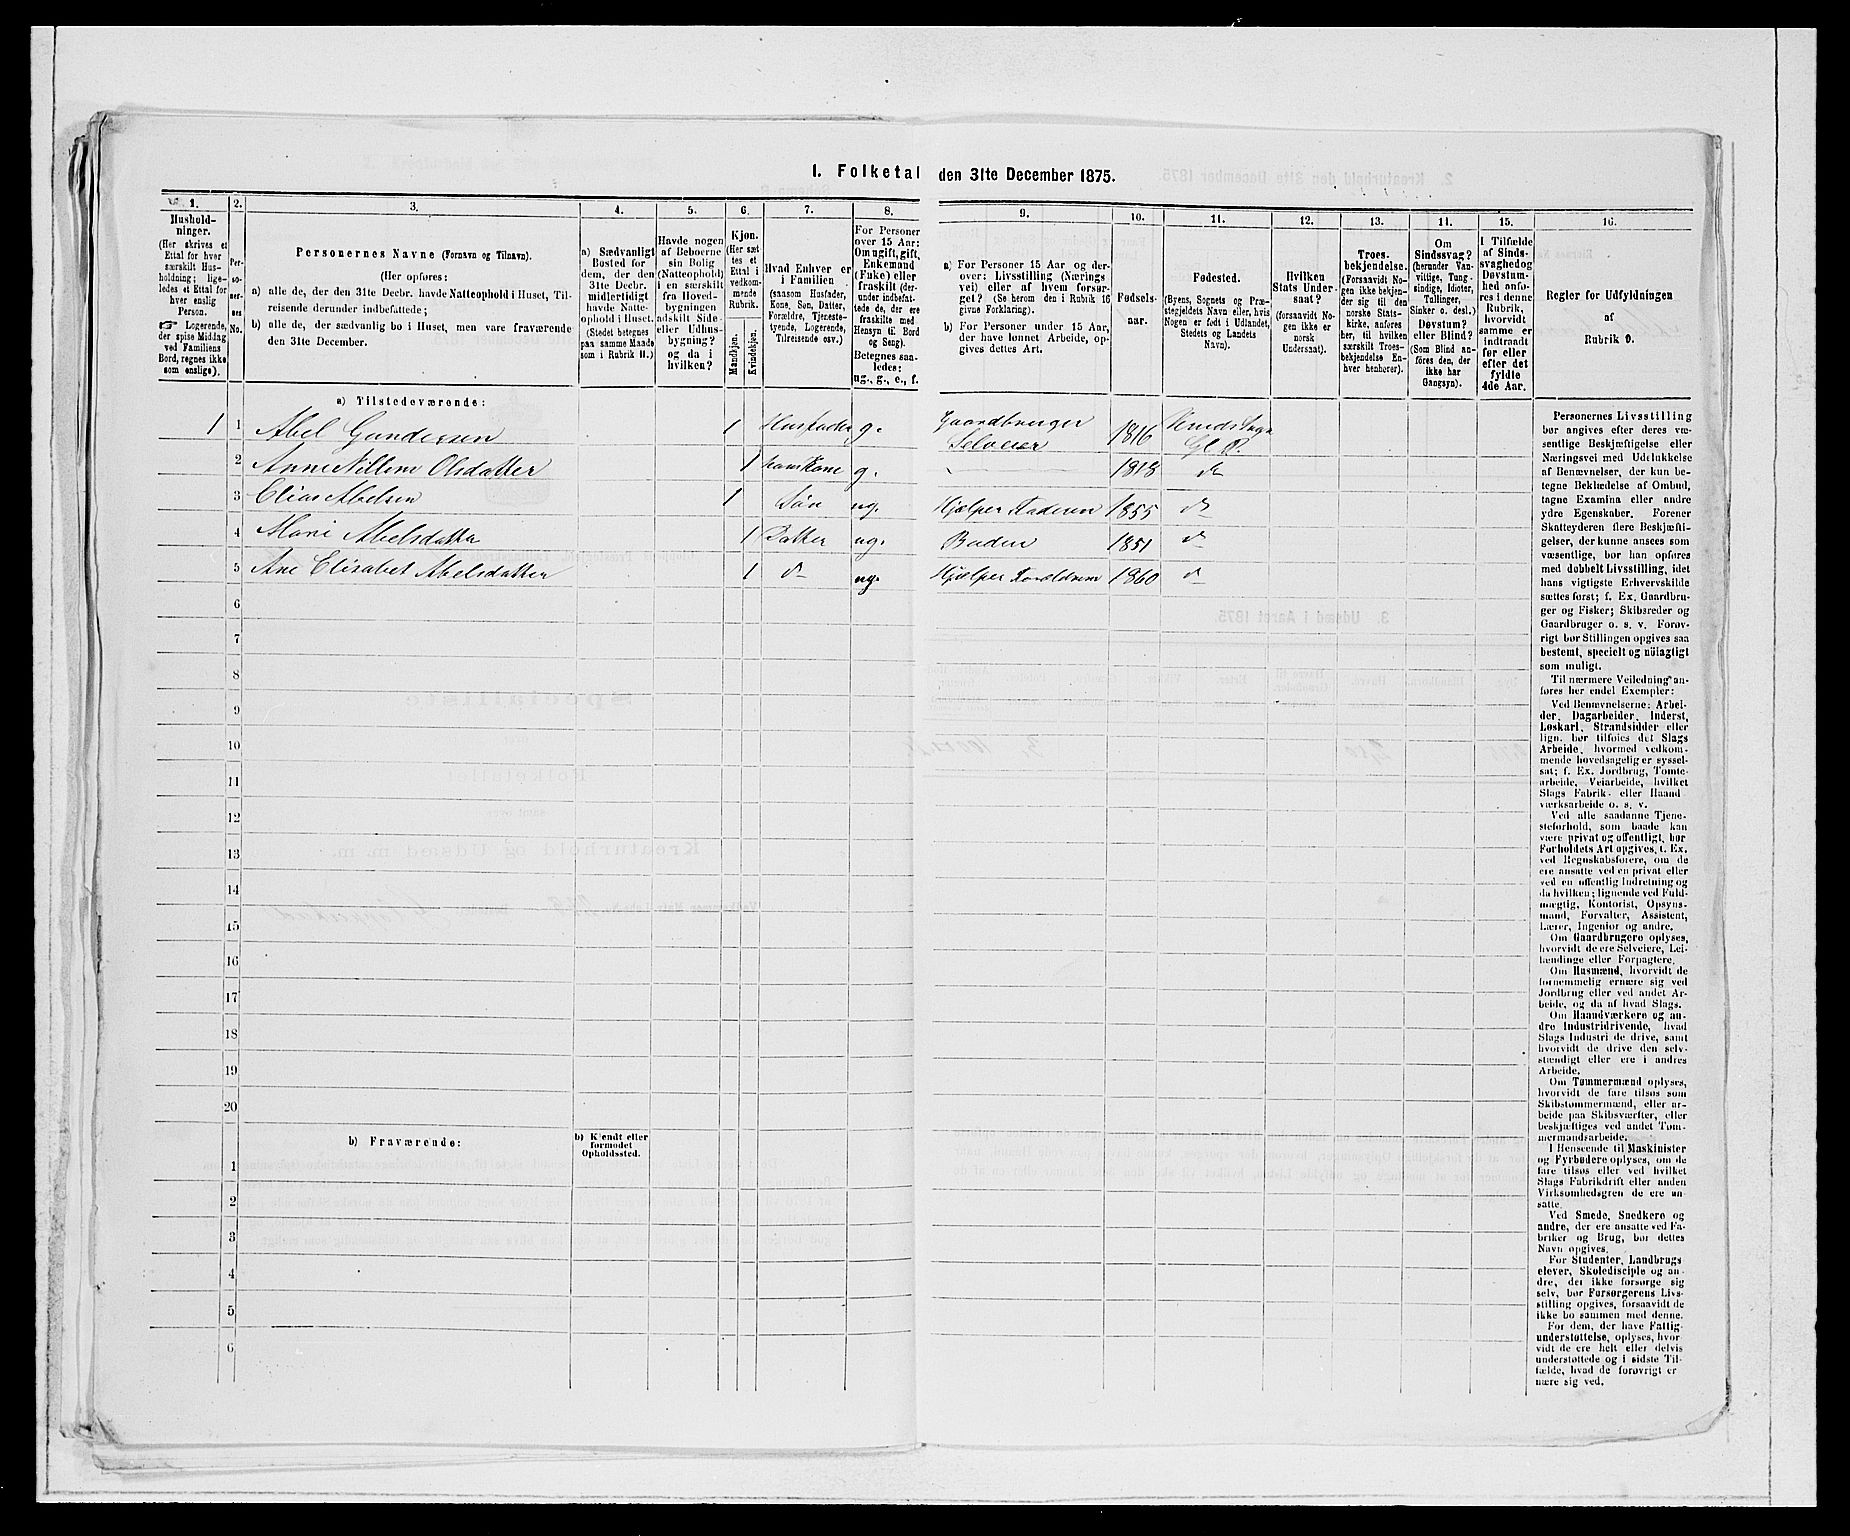 1. Folketal den 31te December 1875.
1.
Hushold-
ninger.
(Her skrives et
Ettal for hver
særskilt Hus-
holdning; lige-
ledes et Ettal for
hver enslig
Person.
☞ Logerende,
der spise Middag
ved Familiens
Bord, regnes ikke
som enslige).
2.
Per-
so-
ner-
nes
No.
3.
Personernes Navne (Fornavn og Tilnavn).
(Her opføres:
a) alle de, der den 31te Decbr. havde Natteophold i Huset, Til-
reisende derunder indbefattede;
b) alle de, der sædvanlig bo i Huset, men vare fraværende
den 31te December.
4.
a) Sædvanligt
Bosted for
dem, der den
31te Decbr.
midlertidigt
havde Natte-
ophold i Huset.
(Stedet betegnes
paa samme Maade
som i Rubrik 11.)
5.
Havde nogen
af Beboerne
sin Bolig
(Natteophold)
i en særskilt
fra Hoved-
bygningen
adskilt Side-
eller Udhus-
bygning?
og da i
hvilken?
6.
Kjøn.
(Her sæt-
tes et
Ettal i
vedkom-
mende
Rubrik.
Mandkjøn.
Kvindekjøn.
7.
Hvad Enhver er
i Familien
(saasom Husfader,
Kone, Søn, Datter,
Forældre, Tjeneste-
tyende, Logerende,
Tilreisende osv.)
8.
For Personer
over 15 Aar:
Om ugift, gift,
Enkemand
(Enke) eller
fraskilt (der-
under indbefat-
tede de, der ere
fraskilte med
Hensyn til Bord
og Seng).
Betegnes saa-
ledes:
ug., g., e., f.
9.
a) For Personer 15 Aar og der-
over: Livsstilling (Nærings
vei) eller af hvem forsør-
get? (Se herom den i Rubrik 16
givne Forklaring).
b) For Personer under 15 Aar,
der have lønnet Arbeide, op-
gives dettes Art.
10.
Fødsels-
aar.
11.
Fødested.
(Byens, Sognets og Præ-
stegjeldets Navn eller, hvis
Nogen er født i Udlandet,
Stedets og Landets
Navn).
12.
Hvilken
Stats Under-
saat?
(forsaavidt No-
gen ikke er
norsk
Undersaat).
13.
Troes-
bekjendelse.
(Forsaavidt No-
gen ikke bekjen-
der sig til den
norske Stats-
kirke, anføres
her, til hvilken
særskilt Troes-
bekjendelse En-
hver henhører).
14.
Om
Sindssvag?
(herunder Van-
vittige, Tung-
sindige, Idioter,
Tullinger,
Sinker o. desl.)
Døvstum?
eller Blind?
(Som Blind an-
føres den, der
ikke har
Gangsyn).
15.
I Tilfælde
af Sinds-
svaghed og
Døvstum-
hed anfø-
res i denne
Rubrik,
hvorvidt
samme er
indtraadt
før eller
efter det
fyldte
4de Aar.
16.
Regler for Udfyldningen
af
Rubrik 9.
a) Tilstedeværende:
1 1 Abel Gundersen 1 Husfader g. Gaardbruger Selveier 1816 Gl. P.
2 Anne Villem Olsdatter 1 hans Kone g. 1818 do
3 Elias Abelsen 1 Søn ug. Hjælper Faderen 1855 do
4 Mari Abelsdatter 1 Datter ug. 1851 do
5 Ane Elisabet Abelsdatter 1 do ug. Hjælper Forældrene 1860 do
6
7
8
9
10
11
12
13
14
15
16
17
18
19
20
b) Fraværende:
b) Kjendt eller
formodet
Opholdssted.
1
2
3
4
5
6
Personernes Livsstilling
bør angives efter deres væ-
sentlige Beskjæftigelse eller
Næringsvei med Udelukkelse
af Benævnelser, der kun be-
tegne Beklædelse af Ombud,
tagne Examina eller andre
ydre Egenskaber. Forener
Skatteyderen flere Beskjæfti-
gelser, der kunne ansees som
væsentlige, bør han opføres
med dobbelt Livsstilling, idet
hans vigtigste Erhvervskilde
sættes først; f. Ex. Gaardbru-
ger og Fisker; Skibsreder og
Gaardbruger o. s. v. Forøv-
rigt bør Stillingen opgives saa
bestemt, specielt og nøiagtigt
som muligt.
Til nærmere Veiledning an-
føres her endel Exempler:
Ved Benævnelserne: Arbei-
der, Dagarbeider, Inderst,
Løskarl, Strandsidder eller
lign. bør tilføies det Slags
Arbeide, hvormed vedkom-
mende hovedsagelig er syssel-
sat; f. Ex. Jordbrug, Tomte-
arbeide, Veiarbeide, hvilket
Slags Fabrik- eller Haand
værksarbeide o. s. v.
Ved alle saadanne Tjene-
steforhold, som baade kan
være privat og offentligt, bør
Forholdets Art opgives, f. Ex.
ved Regnskabsførere, om de
ere ansatte ved en privat eller
ved en offentlig Indretning og
da hvilken; lignende ved Fuld-
mægtig, Kontorist, Opsyns-
mand, Forvalter, Assistent,
Lærer, Ingeniør og andre.
Om Gaardbrugere oplyses,
hvorvidt de ere Selveiere, Lei-
lændinge eller Forpagtere.
Om Husmænd, hvorvidt de
fornemmelig ernære sig ved
Jordbrug eller ved andet Ar-
beide, og da af hvad Slags.
Om Haandværkere og an-
dre Industridrivende, hvad
Slags Industri de drive, samt
hvorvidt de drive den selv-
stændigt eller ere i andres
Arbeide.
Om Tømmermænd oplyses,
hvorvidt de fare tilsøs som
Skibstømmermænd, eller ar-
beide paa Skibsværfter, eller
beskjæftiges ved andet Tøm-
mermandsarbeide.
I Henseende til Maskinister
og Fyrbødere oplyses, om de
fare tilsøs eller ved hvilket
Slags Fabrikdrift eller anden
Virksomhedsgren de ere an-
satte.
Ved Smede, Snedkere og
andre, der ere ansatte ved Fa-
briker og Brug, bør dettes
Navn opgives.
For Studenter, Landbrugs
elever, Skoledisciple og an-
dre, der ikke forsørge sig
selv, bør Forsørgerens Livs-
stilling opgives, forsaavidt de
ikke bo sammen med denne.
For dem, der have Fattig-
understøttelse, oplyses, hvor-
vidt de ere helt eller delvis
understøttede og i sidste Til-
fælde, hvad de forøvrigt er
nære sig ved.